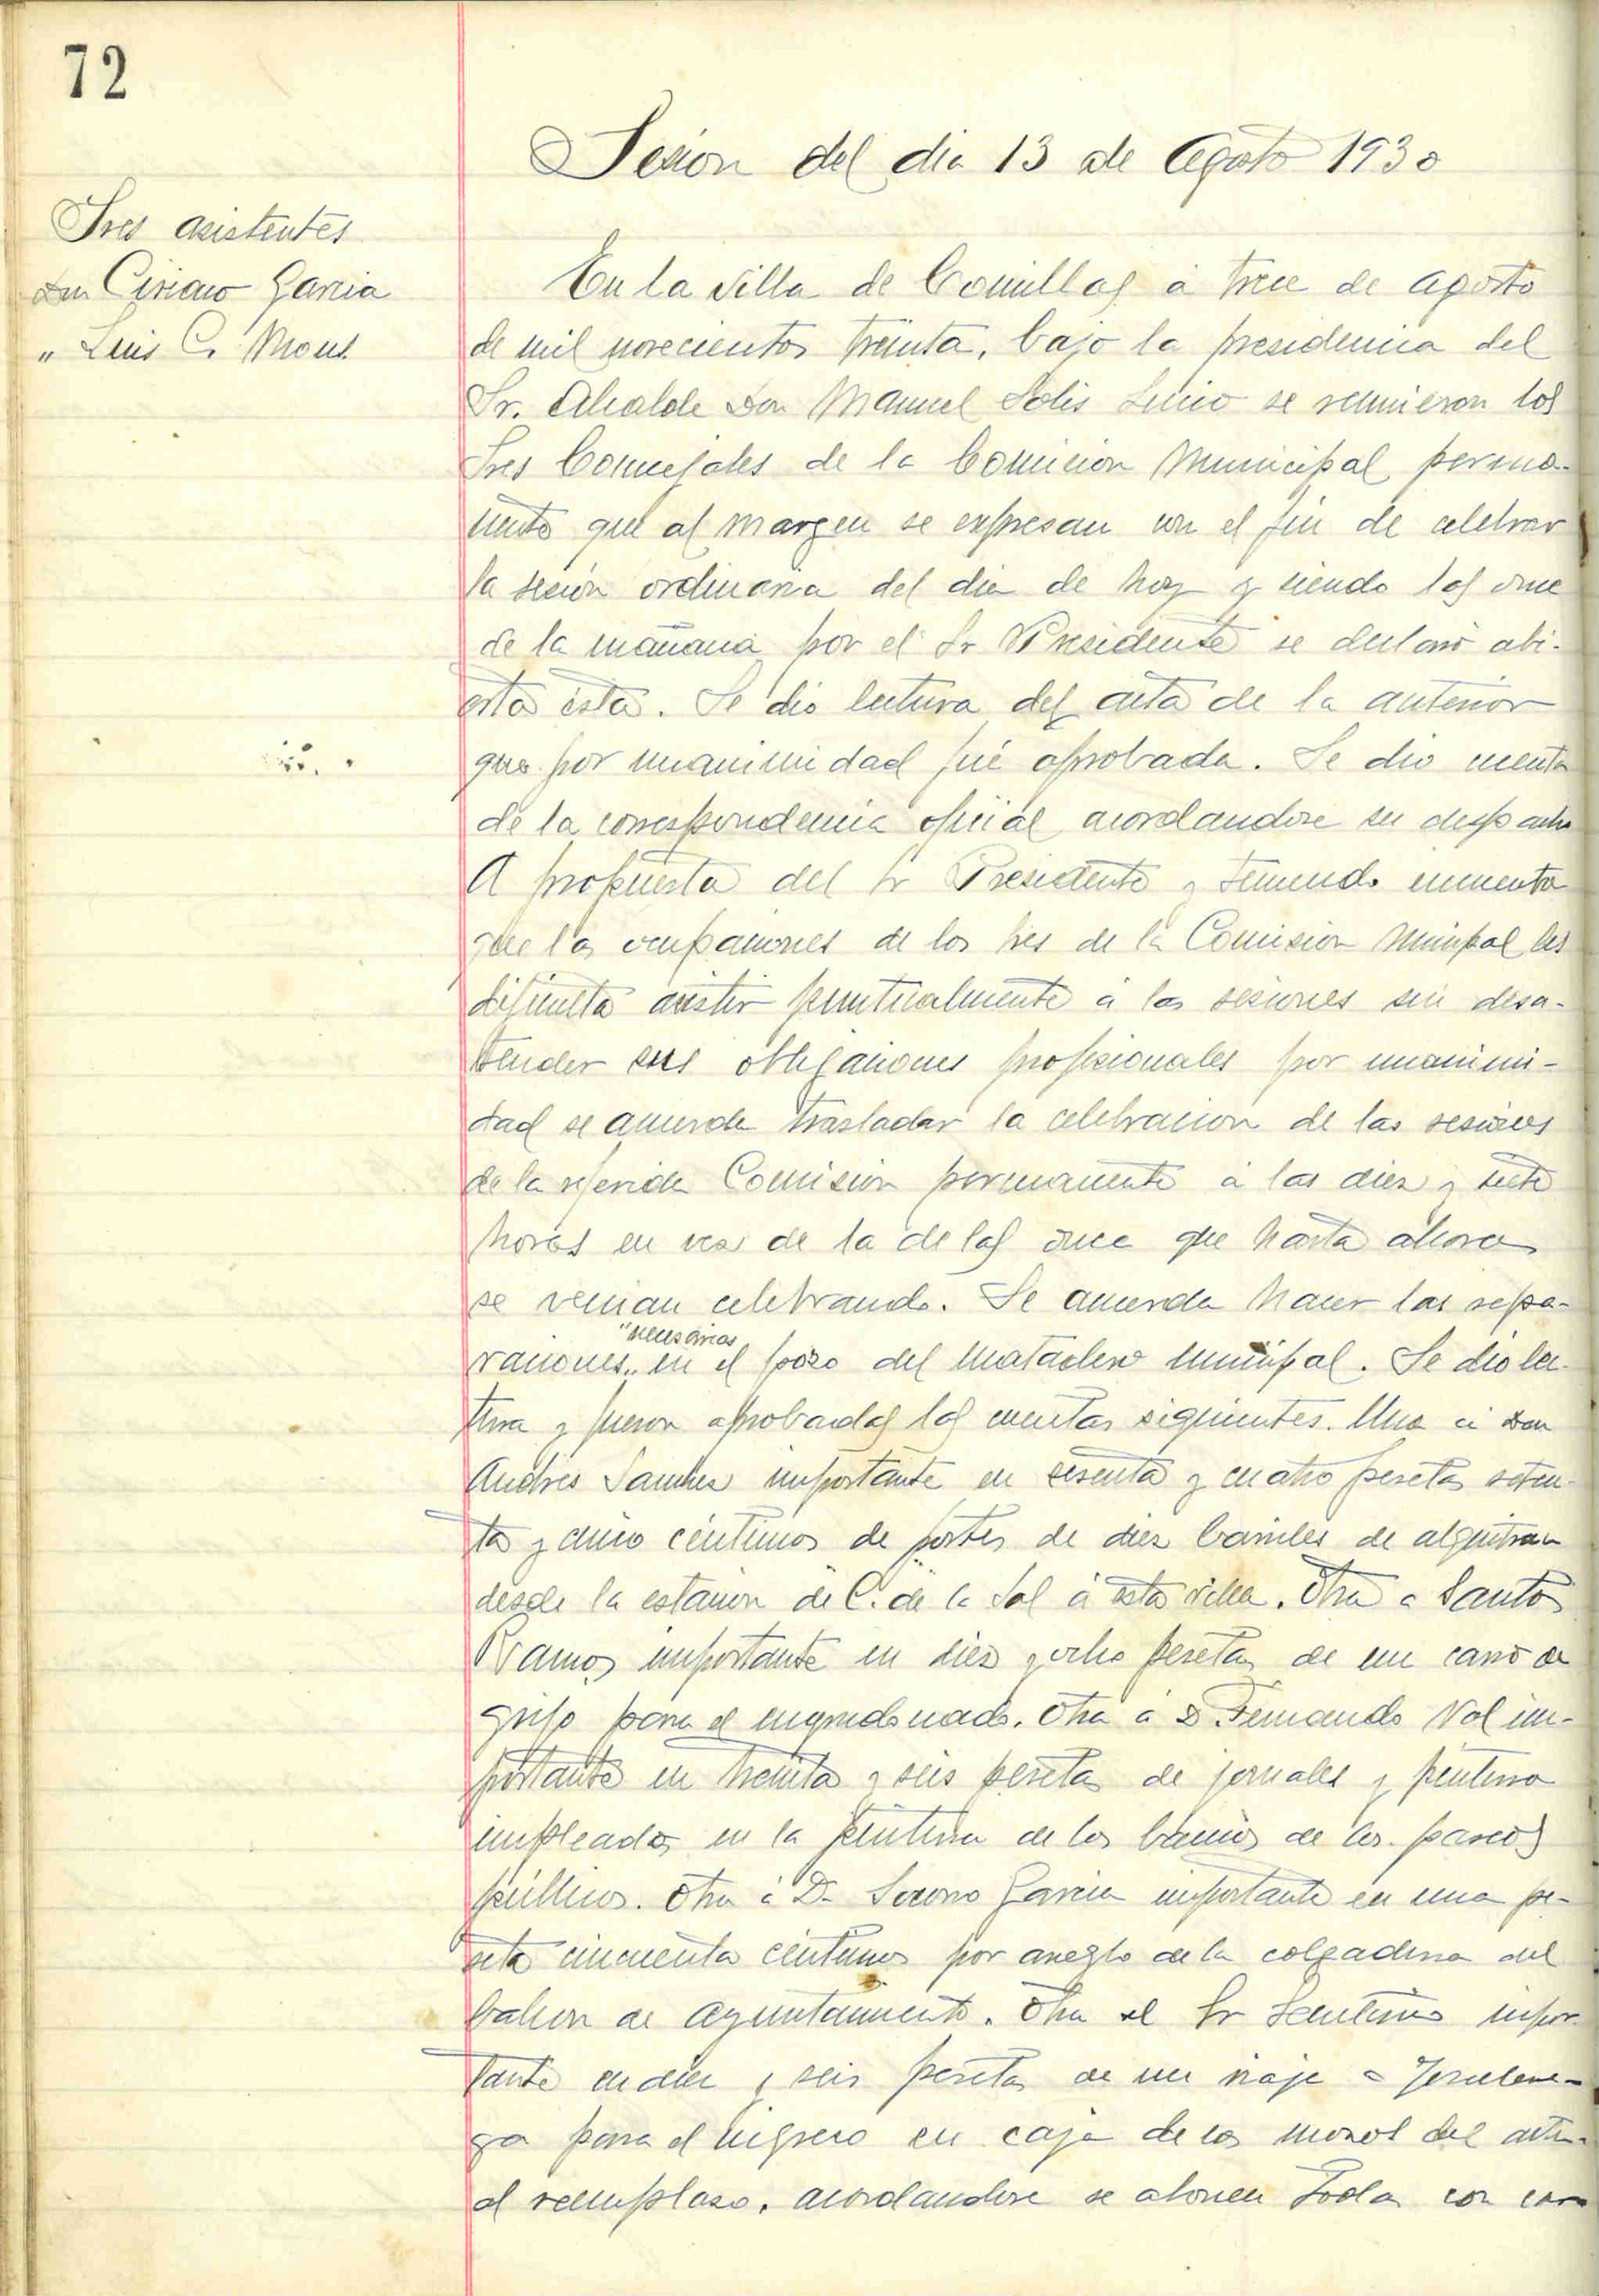 72
Sesion del dia 13 de Agosto 1930
Sres asistentes
Don Ciriaco Garcia
" Luis C. Mons
En la villa de Comillas á trece de agosto
de mil novecientos treinta, bajo la presidencia del
Sr. Alcalde Don Manuel Solis se reunieron los
Sres Concejales de la Comision Municipal perma-
nente que al margen se expresan con el fin de celebrar
la sesión ordinaria del dia de hoy y siendo las once
de la mañana por el Sr Presidente se declaró abi-
erta ésta. Se dió lectura del acta de la anterior
que por unanimidad fué aprobada. Se dio cuenta
de la correspondencia oficial acordandose su despacho
A propuesta del Sr Presidente y teniendo encuenta
que las ocupaciones de los Sres de la Comision Municipal les
dificulta asistir puntualmente á las sesiones sin desa-
tender sus obligaciones profesionales por unanimi-
dad se acuerda trasladar la celebracion de las sesiones
de la referida Comisión permanente á las diez y siete
horas en vez de la de las once que hasta ahora
se venian celebrando. Se acuerda hacer las repa-
raciones "necesarias" en el pozo del matadero municipal. Se dio lec-
tura y fueron aprobadas las cuentas siguientes. Una á Don
Andrés Sanchez importante en sesenta y cuatro pesetas seten-
ta y cinco céntimos de portes de diez barriles de alquitran
desde la estacion de C. de la Sal á esta villa. Otra a Santos
Ramos importante en diez y ocho pesetas de un carro de
guijo para el engredonado. Otra á D. Fernando Nol im-
portante en treinta y seis pesetas de jornales y pintura
empleados en la pintura de los bancos de los paseos
públicos. Otra á D. Garcia importante en una pe-
seta cincuenta céntimos por arreglo de la colgadura del
balcon de Ayuntamiento. Otra al Sr impor-
tante en diez y seis pesetas de un viaje a Torrelave-
ga para el ingreso en caja de los mozos del actu-
al reemplazo, acordandose se abonen todas con car